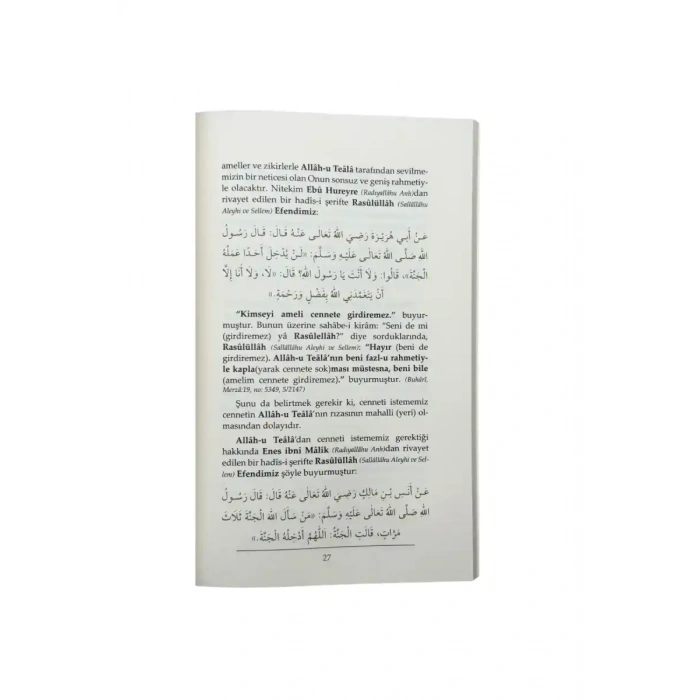 ameller ve zikirlerle Allâh-u Teâlâ tarafından sevilme-
mizin bir neticesi olan Onun sonsuz ve geniş rahmetiy-
le olacaktır. Nitekim Ebû Hureyre (Radıyallâhu Anh)dan
rivayet edilen bir hadîs-i şerifte Rasûlüllâh (Sallâllâhu
Aleyhi ve Sellem) Efendimiz:
عَنْ أَبِي هُرَيْرَةَ رَضِيَ اللهُ تَعَالَى عَنْهُ قَالَ: قَالَ رَسُولُ
اللهِ صَلَّى اللهُ تَعَالَى عَلَيْهِ وَسَلَّمَ: «لَنْ يُدْخِلَ أَحَدًا عَمَلُهُ
الْجَنَّةَ»، قَالُوا: وَلَا أَنْتَ يَا رَسُولَ اللهِ؟ قَالَ: «لَا، وَلَا أَنَا إِلَّا
أَنْ يَتَغَمَّدَنِي اللهُ بِفَضْلٍ وَرَحْمَةٍ.»
“Kimseyi ameli cennete girdiremez.” buyur-
muştur. Bunun üzerine sahâbe-i kirâm: “Seni de mi
(girdiremez) yâ Rasûlellâh?” diye sorduklarında,
Rasûlüllâh (Sallâllâhu Aleyhi ve Sellem): “Hayır (beni de
girdiremez). Allâh-u Teâlâ’nın beni fazl-u rahmetiy-
le kapla(yarak cennete sok)ması müstesna, beni bile
(amelim cennete giremez).” buyurmuştur. (Buhârî,
Merzâ:19, no: 5349, 5/2147)
Şunu da belirtmek gerekir ki, cenneti istememiz
cennetin Allâh-u Teâlâ’nın rızasının mahalli (yeri) ol-
masından dolayıdır.
Allâh-u Teâlâ’dan cenneti istememiz gerektiği
hakkında Enes ibni Mâlik (Radıyallâhu Anh)dan rivayet
edilen bir hadîs-i şerifte Rasûlüllâh (Sallâllâhu Aleyhi ve Sel-
lem) Efendimiz şöyle buyurmuştur:
عَنْ أَنَسِ بْنِ مَالِكٍ رَضِيَ اللهُ تَعَالَى عَنْهُ قَالَ: قَالَ رَسُولُ
اللهِ صَلَّى اللهُ تَعَالَى عَلَيْهِ وَسَلَّمَ: «مَنْ سَأَلَ اللهَ الْجَنَّةَ ثَلَاثَ
مَرَّاتٍ، قَالَتِ الْجَنَّةُ: اَللّٰهُمَّ أَدْخِلْهُ الْجَنَّةَ.»
27